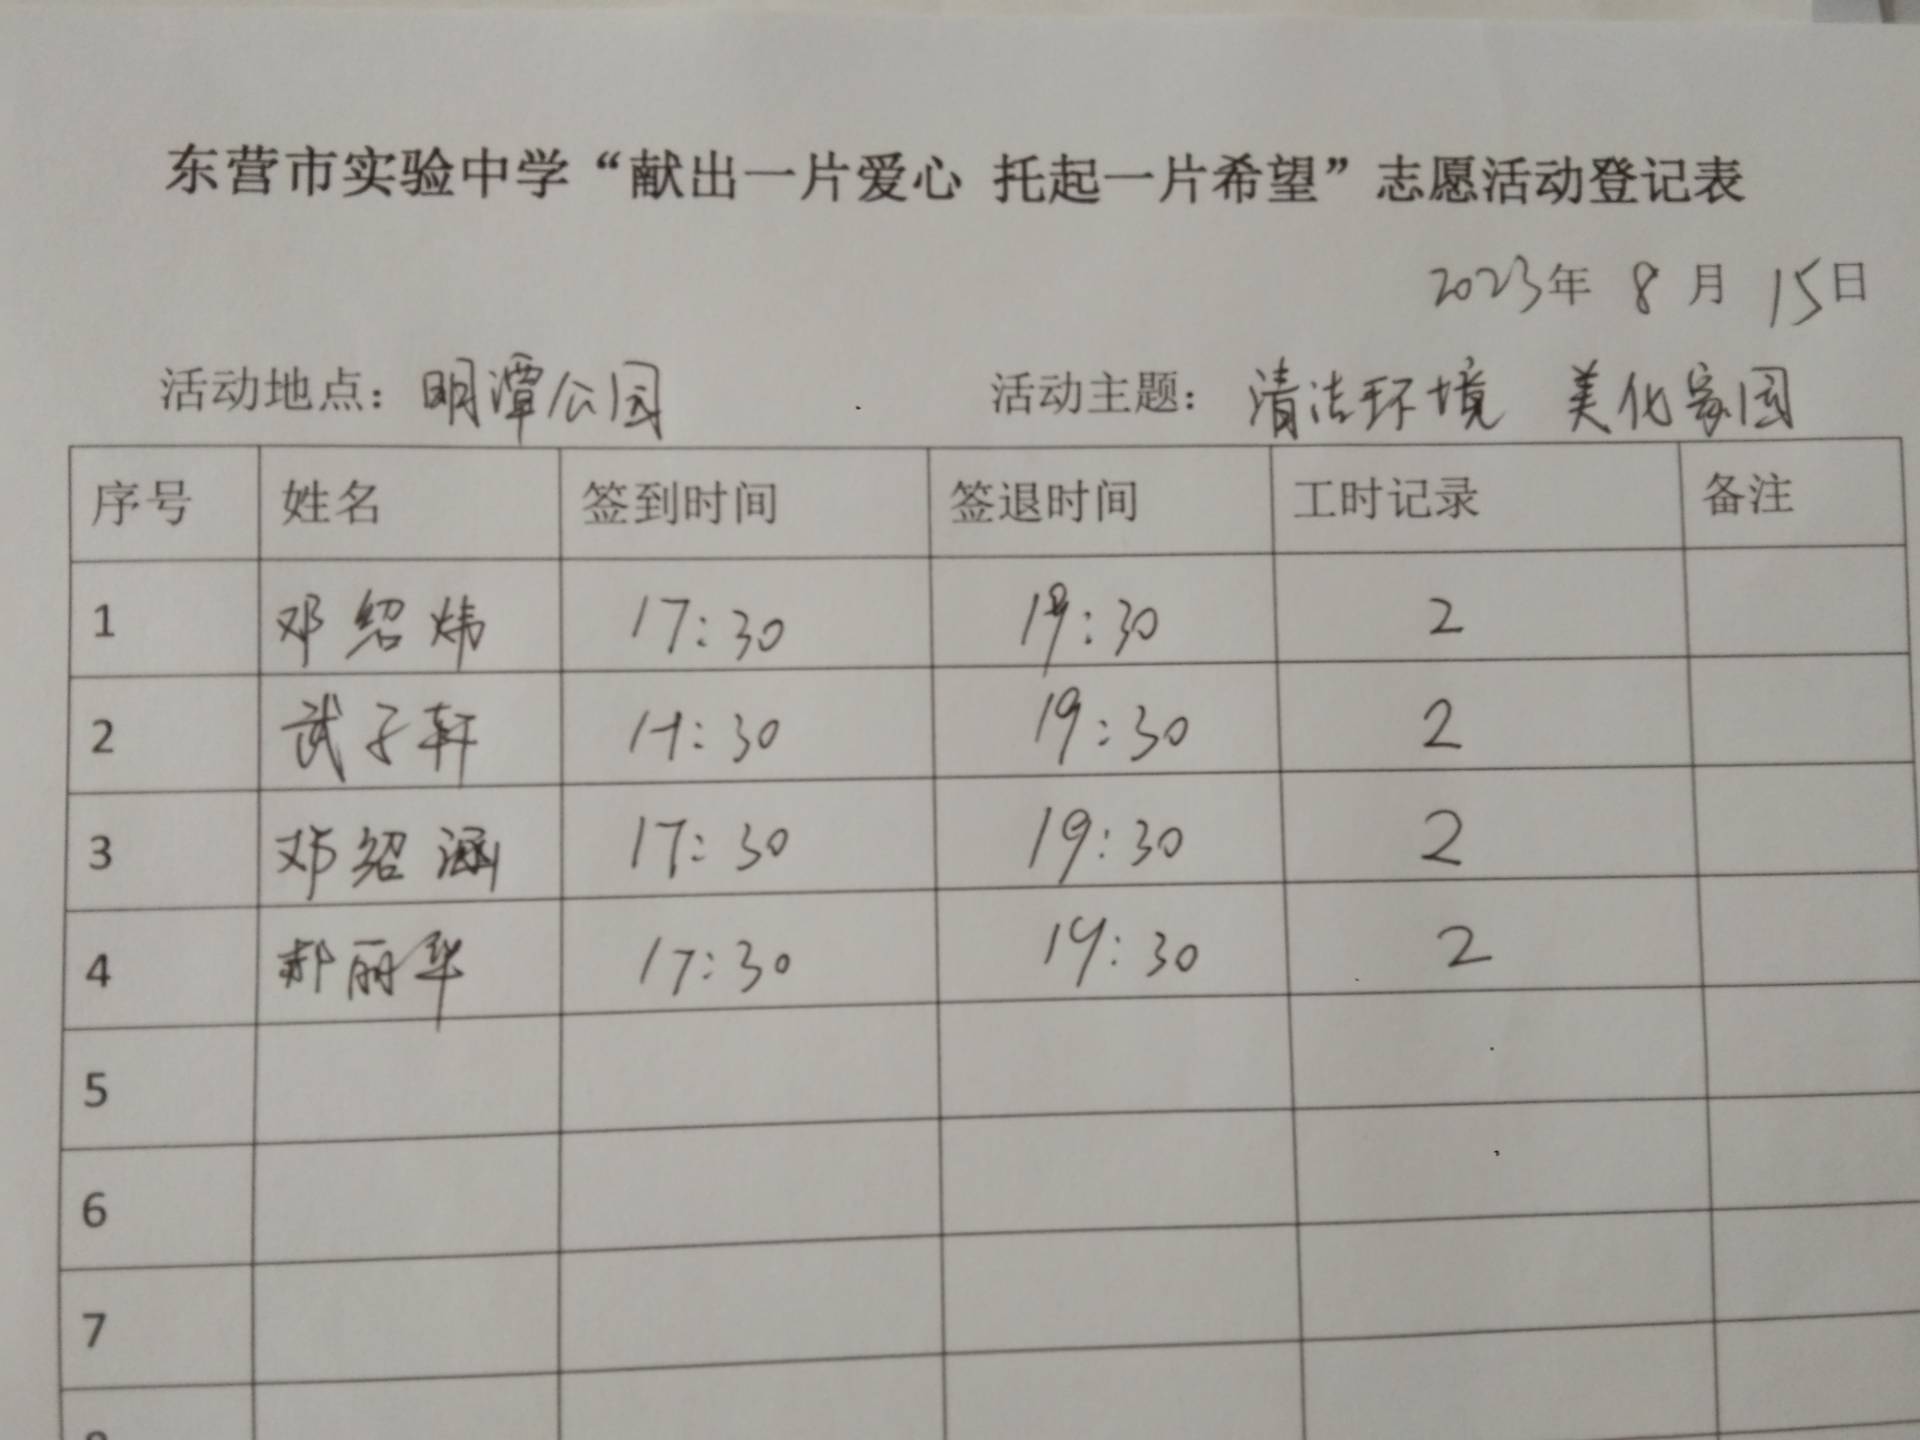 东营市实验中学“献出一片爱心 托起一片希望”志愿活动登记表
2023年 8 月 15日
活动地点：明潭公园 活动主题：清洁环境 美化家园
序号 姓名 签到时间 签退时间 工时记录 备注
1 邓绍炜 17:30 19:30 2
2 武子轩 17:30 19:30 2
3 邓绍涵 17:30 19:30 2
4 郝丽华 17:30 19:30 2
5
6
7